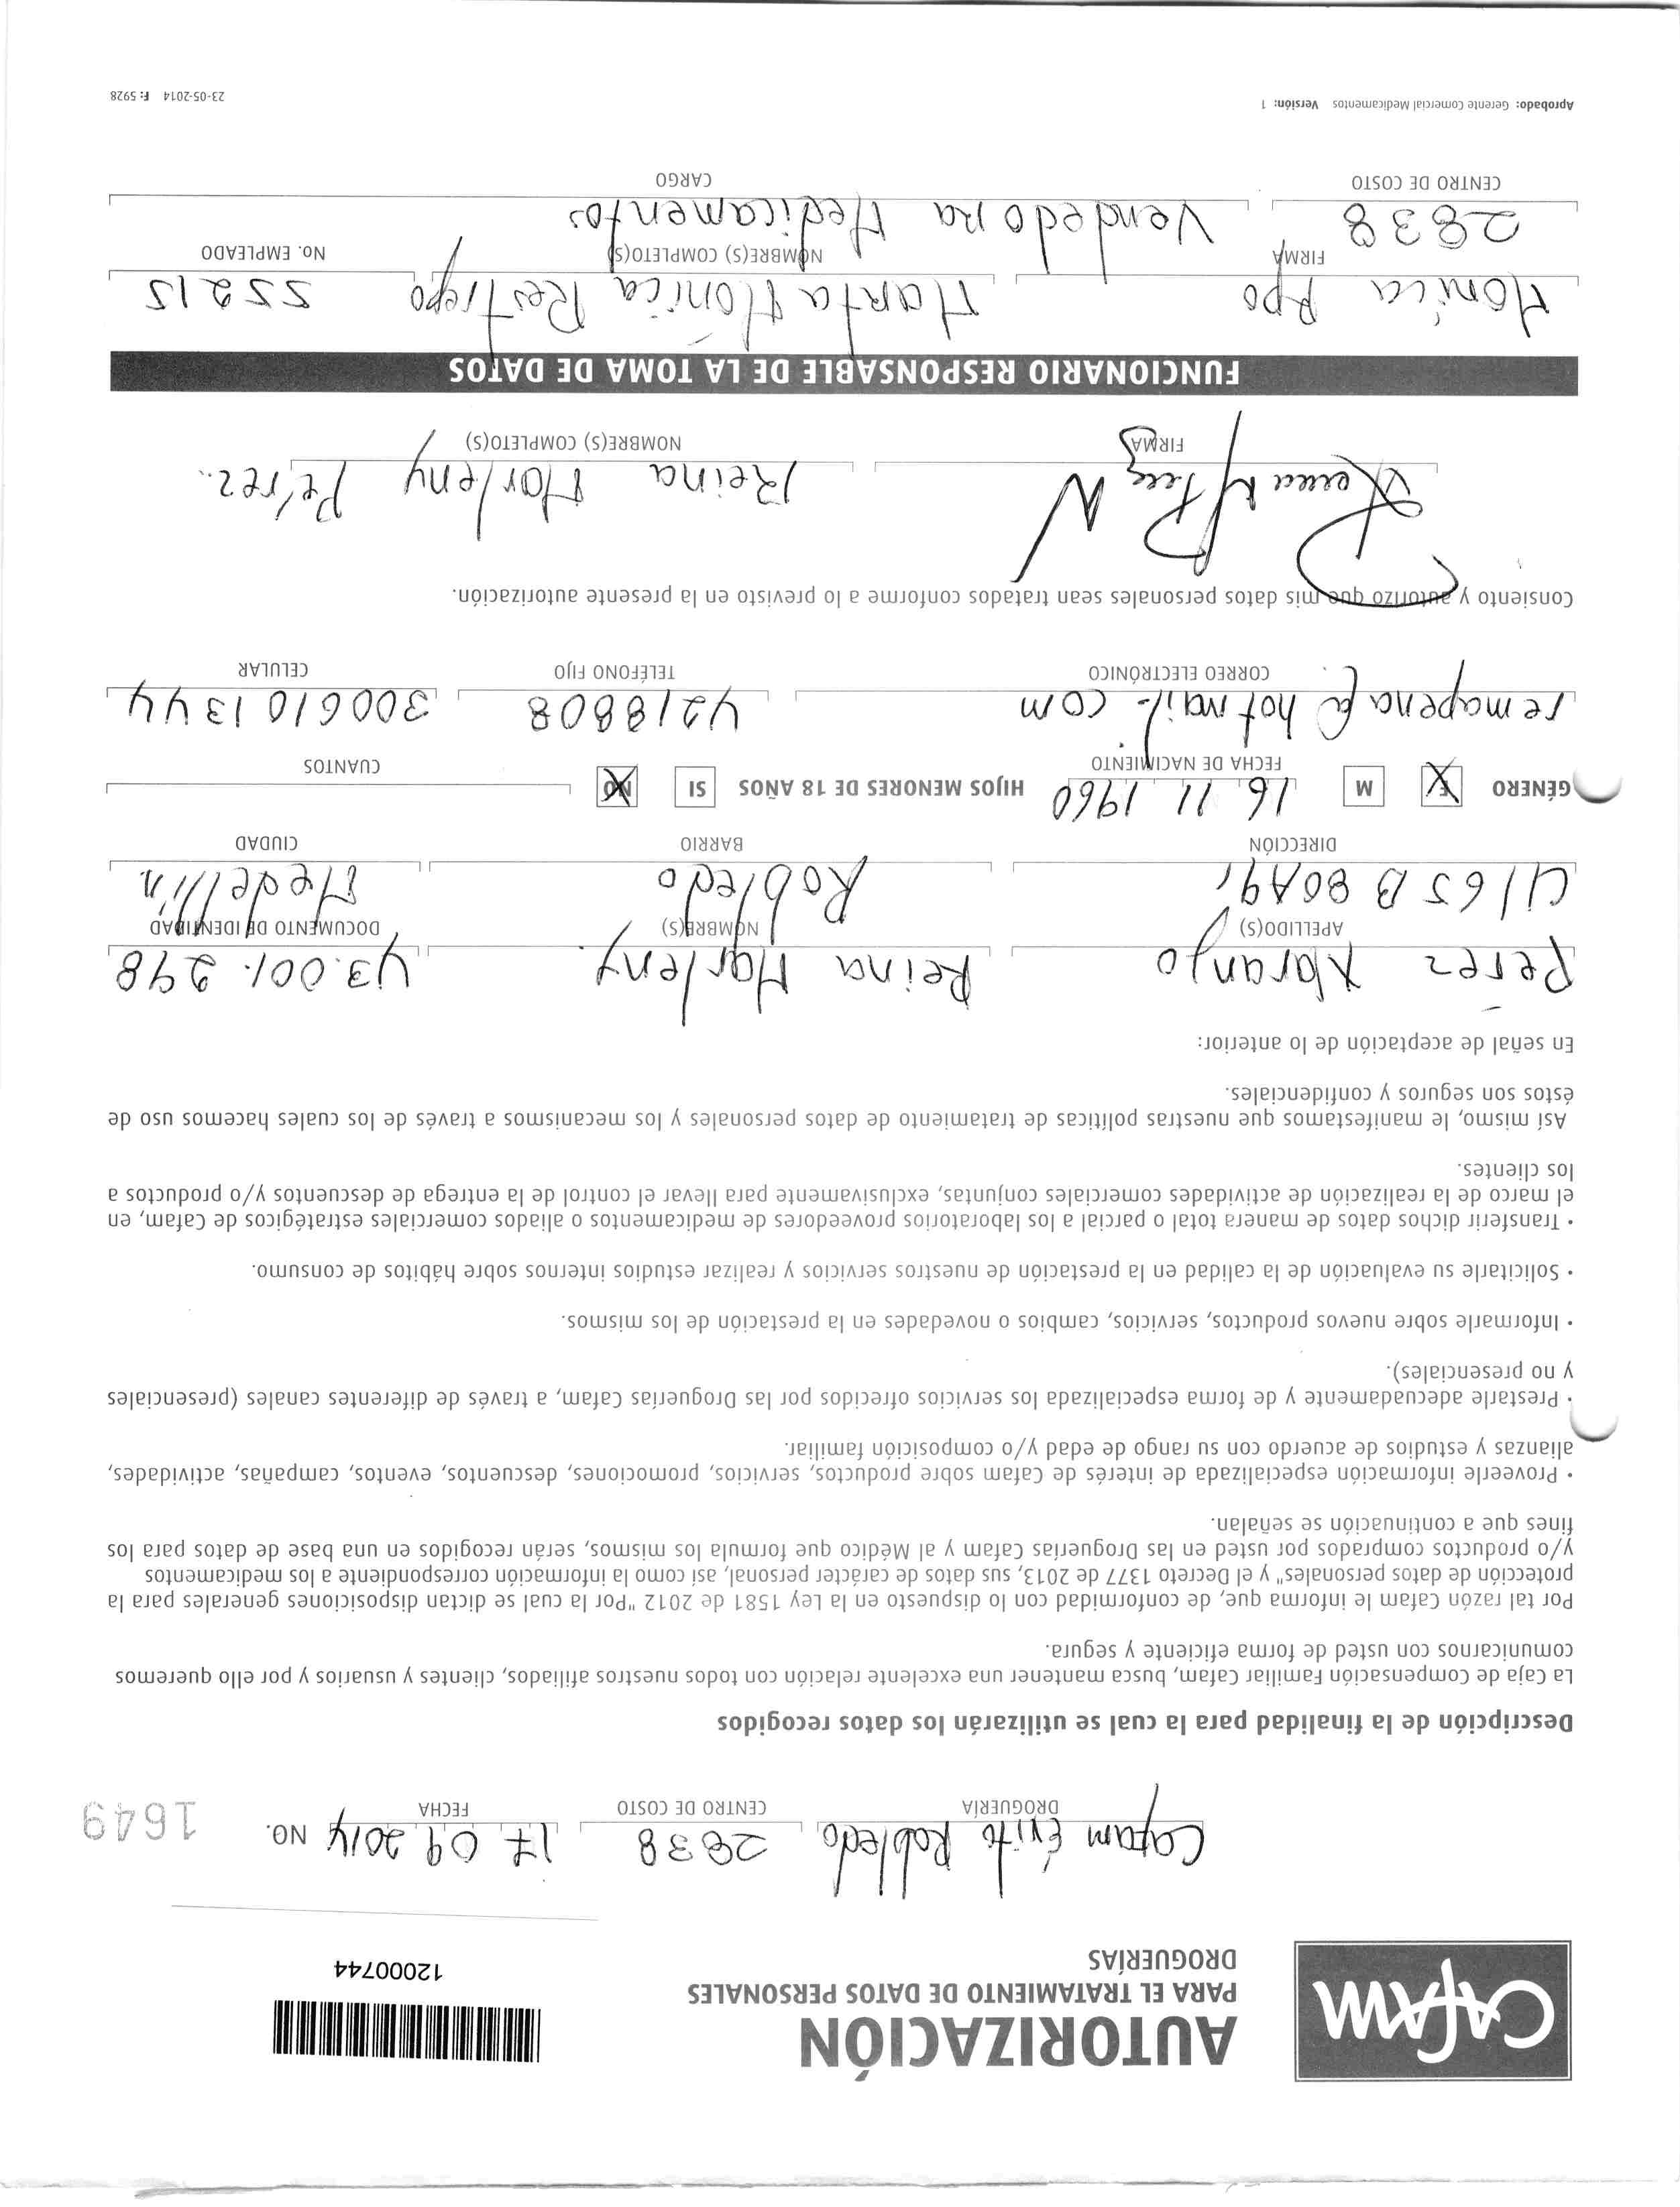 CAFAM
AUTORIZACIÓN
PARA EL TRATAMIENTO DE DATOS PERSONALES
DROGUERÍAS
12000744
Cafam Éxito Robledo 2838 17 09 2014 NO. 1649
DROGUERÍA CENTRO DE COSTO FECHA
Descripción de la finalidad para la cual se utilizarán los datos recogidos
La Caja de Compensación Familiar Cafam, busca mantener una excelente relación con todos nuestros afiliados, clientes y usuarios y por ello queremos
comunicarnos con usted de forma eficiente y segura.
Por tal razón Cafam le informa que, de conformidad con lo dispuesto en la Ley 1581 de 2012 "Por la cual se dictan disposiciones generales para la
protección de datos personales" y el Decreto 1377 de 2013, sus datos de carácter personal, así como la información correspondiente a los medicamentos
y/o productos comprados por usted en las Droguerías Cafam y al Médico que formula los mismos, serán recogidos en una base de datos para los
fines que a continuación se señalan.
• Proveerle información especializada de interés de Cafam sobre productos, servicios, promociones, descuentos, eventos, campañas, actividades,
alianzas y estudios de acuerdo con su rango de edad y/o composición familiar.
• Prestarle adecuadamente y de forma especializada los servicios ofrecidos por las Droguerías Cafam, a través de diferentes canales (presenciales
y no presenciales).
• Informarle sobre nuevos productos, servicios, cambios o novedades en la prestación de los mismos.
• Solicitarle su evaluación de la calidad en la prestación de nuestros servicios y realizar estudios internos sobre hábitos de consumo.
• Transferir dichos datos de manera total o parcial a los laboratorios proveedores de medicamentos o aliados comerciales estratégicos de Cafam, en
el marco de la realización de actividades comerciales conjuntas, exclusivamente para llevar el control de la entrega de descuentos y/o productos a
los clientes.
Así mismo, le manifestamos que nuestras políticas de tratamiento de datos personales y los mecanismos a través de los cuales hacemos uso de
éstos son seguros y confidenciales.
En señal de aceptación de lo anterior:
Pérez Naranjo Reina Marleny. 43.001.298
APELLIDO(S) NOMBRE(S) DOCUMENTO DE IDENTIDAD
Cl 65 B 80A91 Robledo Medellín
DIRECCIÓN BARRIO CIUDAD
GÉNERO F M 16 11 1960 HIJOS MENORES DE 18 AÑOS SI NO
FECHA DE NACIMIENTO CUANTOS
remapena@hotmail.com 4218808 3006101344
CORREO ELECTRÓNICO TELÉFONO FIJO CELULAR
Consiento y autorizo que mis datos personales sean tratados conforme a lo previsto en la presente autorización.
Reina Marleny Pérez.
FIRMA NOMBRE(S) COMPLETO(S)
FUNCIONARIO RESPONSABLE DE LA TOMA DE DATOS
Mónica Rpo Marta Mónica Restrepo 55215
FIRMA NOMBRE(S) COMPLETO(S) No. EMPLEADO
2838 Vendedora Medicamentos
CENTRO DE COSTO CARGO
Aprobado: Gerente Comercial Medicamentos Versión: 1 23-05-2014 F: 5928